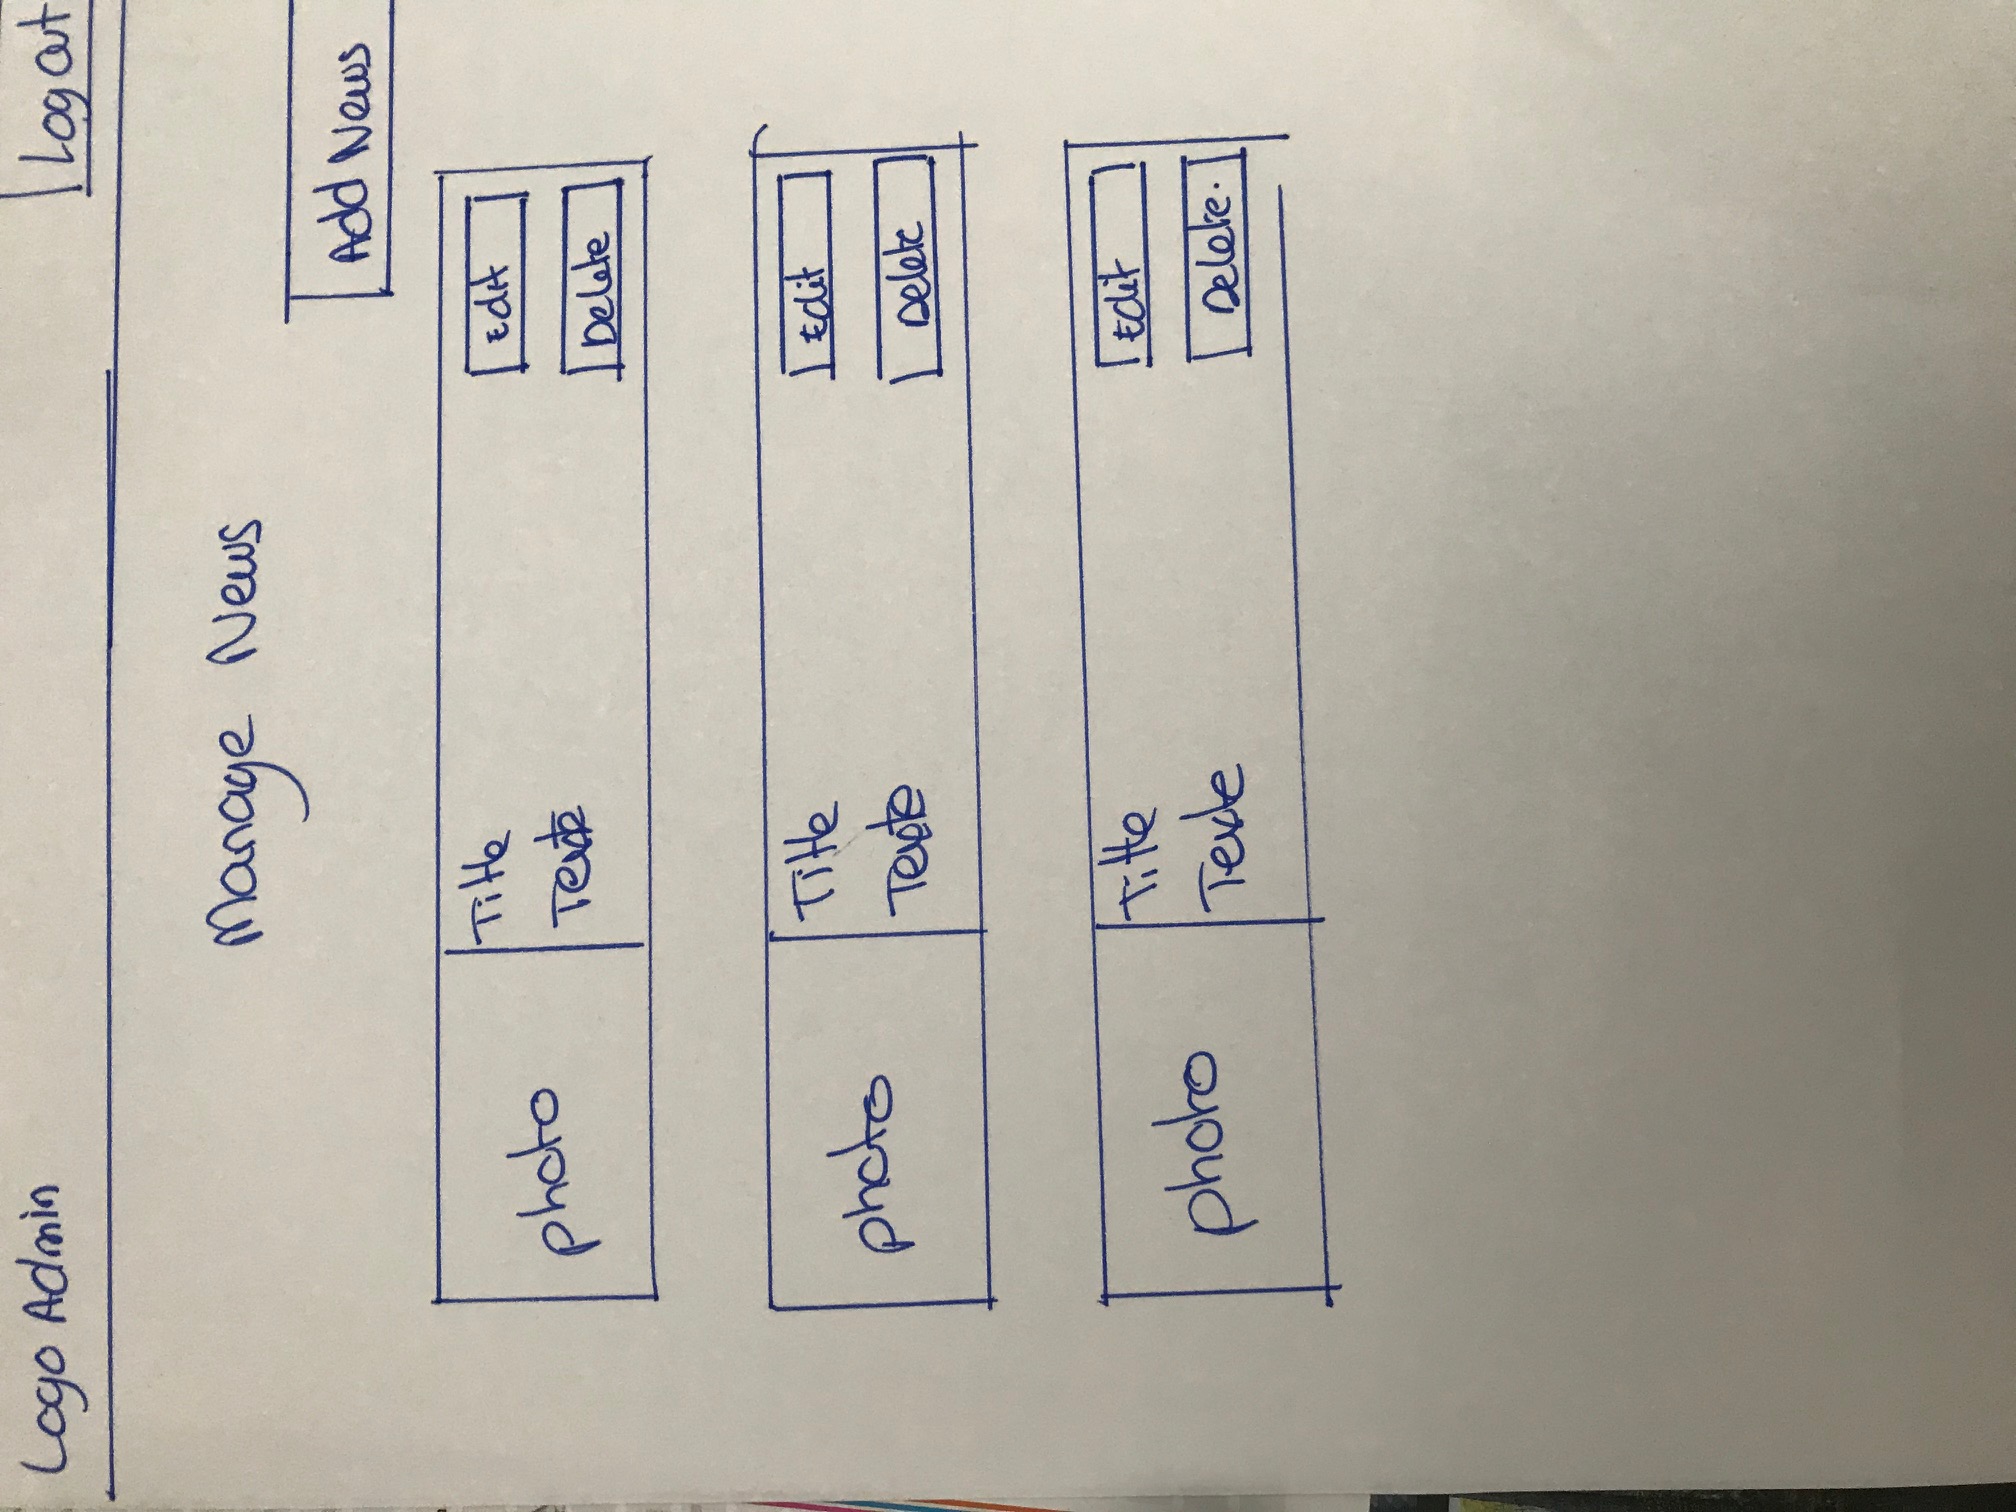 Logo Admin
Log Out
Manage News
Add News
photo
Title
Texte
Edit
Delete
photo
Title
Texte
Edit
Delete
photo
Title
Texte
Edit
Delete.